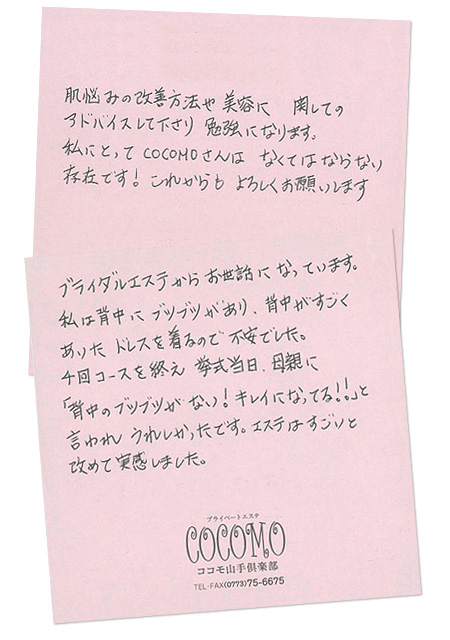 肌悩みの改善方法や美容に 関しての
アドバイスして下さり 勉強になります。
私にとって COCOMOさんは なくてはならない
存在です! これからも よろしくお願いします
ブライダルエステからお世話になっています。
私は背中に ブツブツがあり、背中がすごく
あいた ドレスを着るので 不安でした。
4回コースを終え 挙式当日、母親に
「背中のブツブツが ない! キレイになってる!!」と
言われ うれしかったです。エステはすごいと
改めて実感しました。
プライベートエステ
COCOMO
ココモ山手倶楽部
TEL・FAX(0773)75-6675